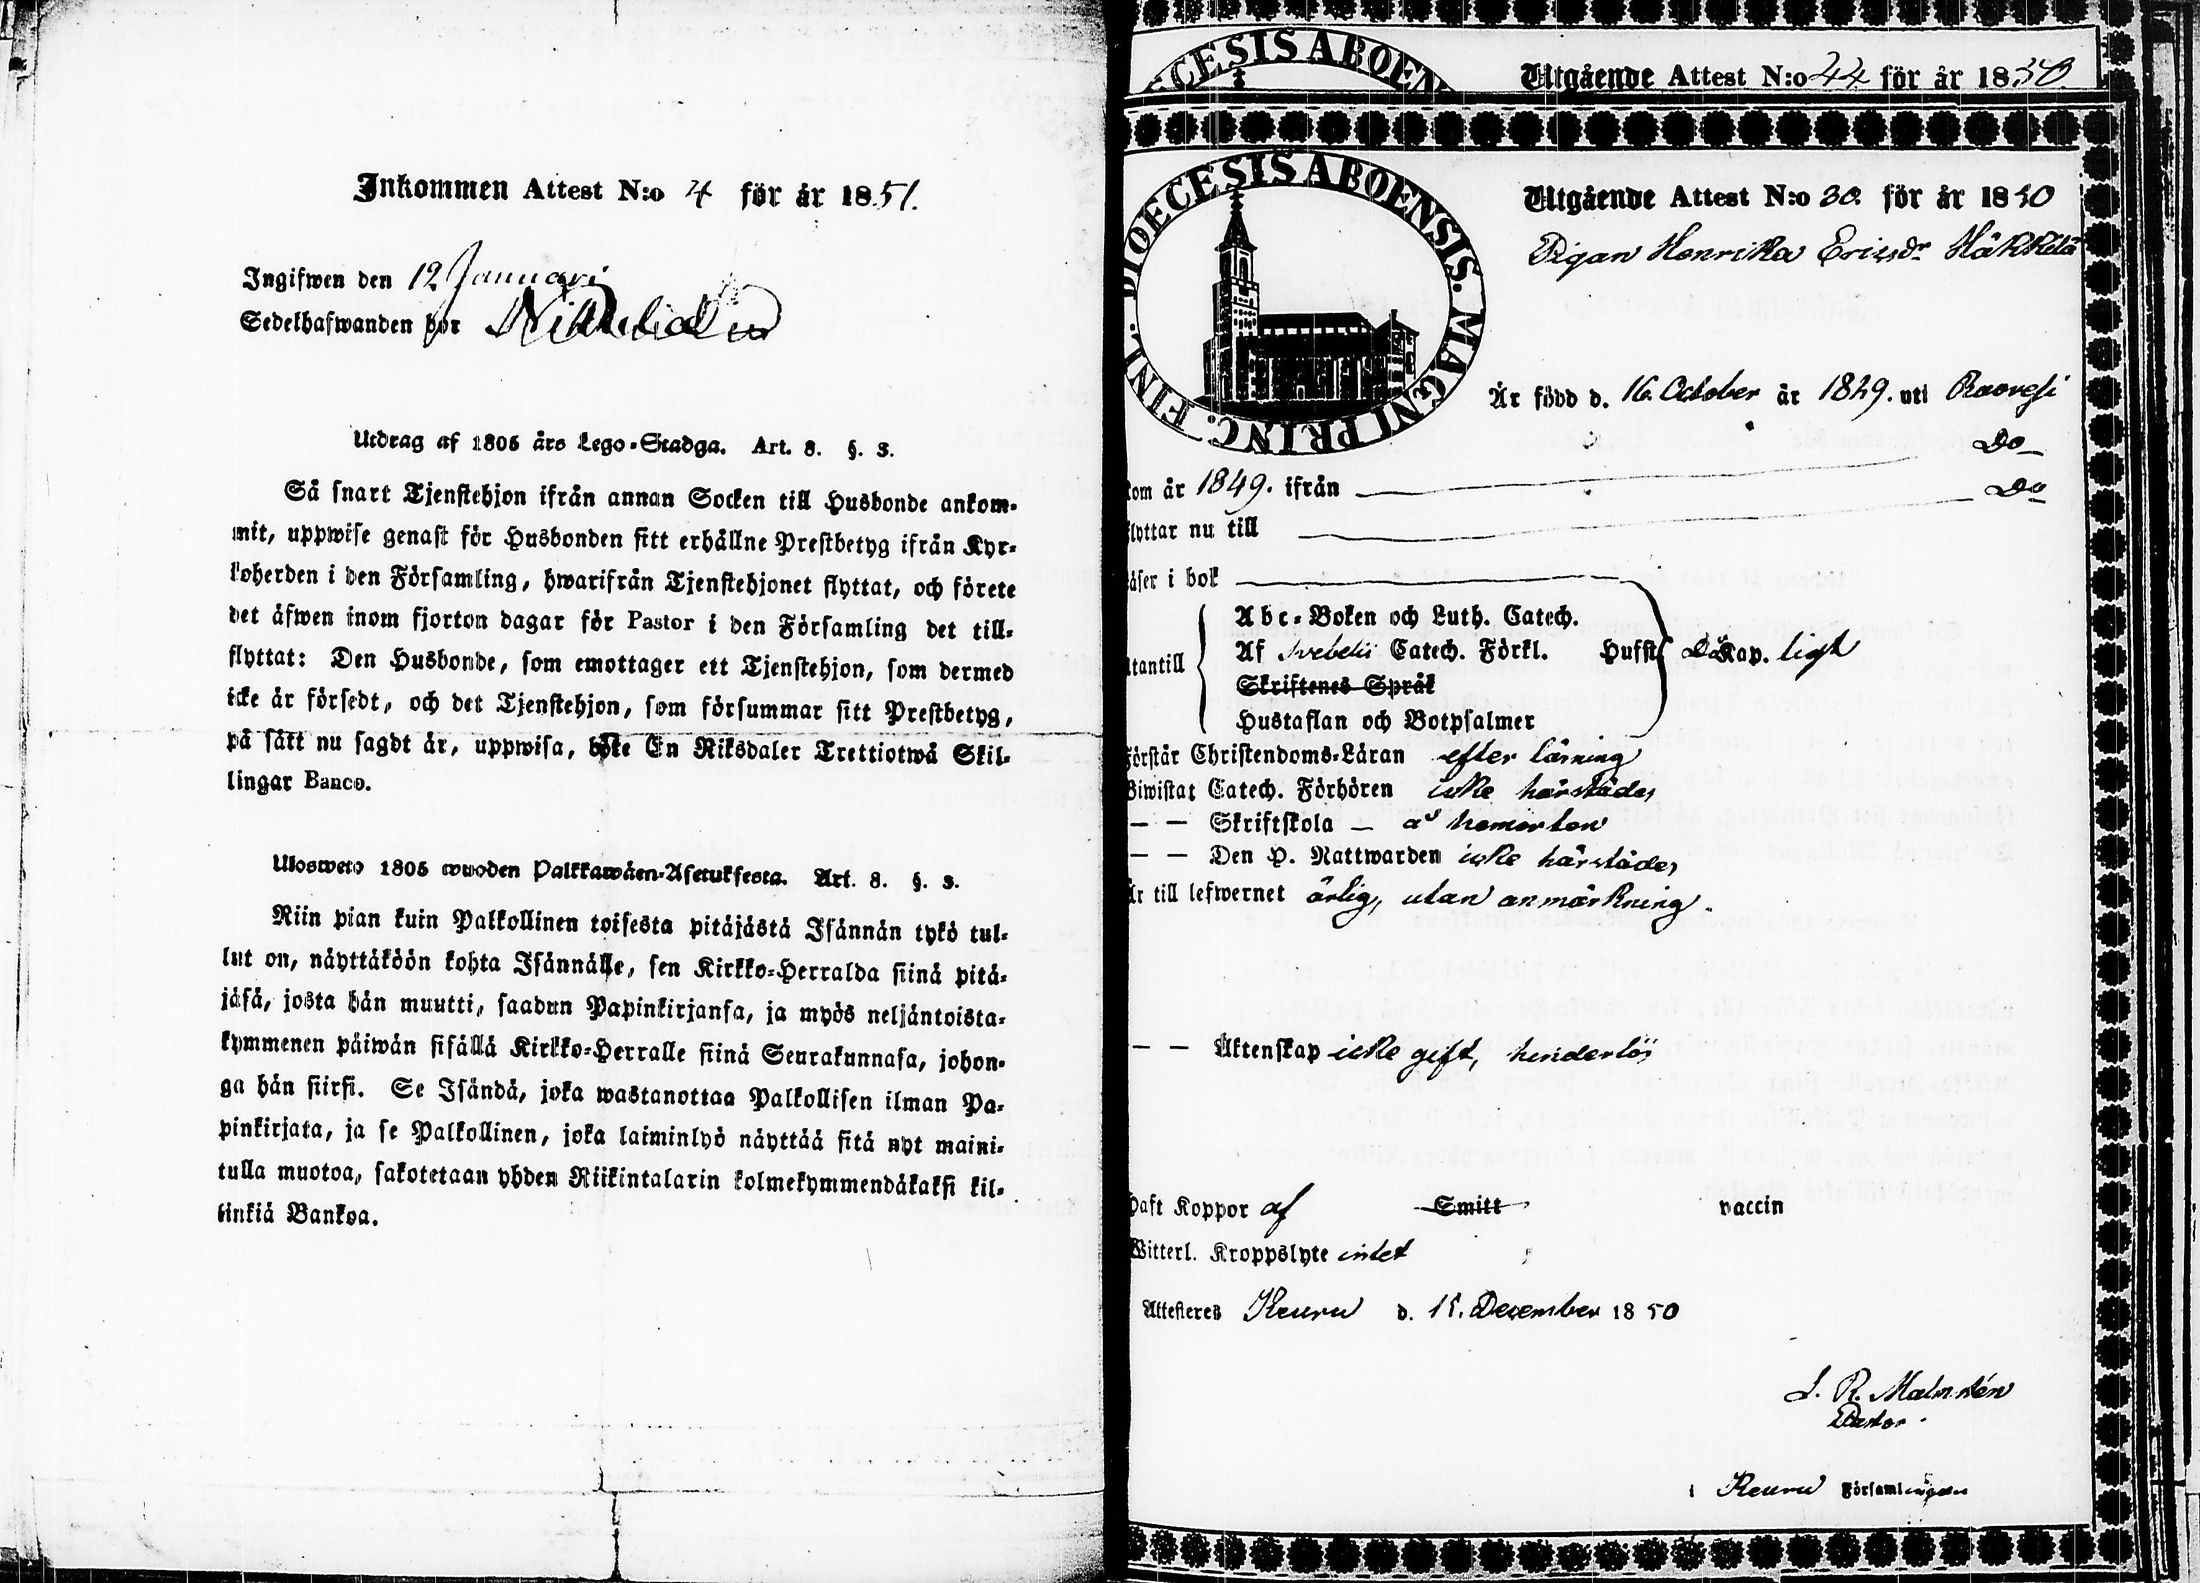 Inkommen Attest N:o 4 för år 1851.
Ingifwen den 12 Januari
Sedelhafwanden bor
Utdrag af 1805 års Lego-Stadga. Art. 8. §. 3.
Så snart Tjenstehjon ifrån annan Socken till Husbonde ankom-
mit, uppwise genast för Husbonden sitt erhållne Prestbetyg ifrån Kyr-
koherden i den Församling, hwarifrån Tjenstehjonet flyttat, och förete
det äfwen inom fjorton dagar för Pastor i den Församling det till-
flyttat: Den Husbonde, som emottager ett Tjenstehjon, som dermed
icke är försedt, och det Tjenstehjon, som försummar sitt Prestbetyg,
på sätt nu sagdt är, uppwisa, böte En Riksdaler Trettiotwå Skil-
lingar Banco.
Ulosweto 1805 wuoden Palkkawäen-Asetuksesta. Art. 8. §. 3.
Niin pian kuin Palkollinen toisesta pitäjästä Isännän tykö tul-
lut on, näyttäköön kohta Isännälle, sen Kirkko-Herralda siinä pitä-
jäsä, josta hän muutti, saadun Papinkirjansa, ja myös neljäntoista-
kymmenen päiwän sisällä Kirkko-Herralle siinä Seurakunnasa, johon-
ga hän siirsi. Se Isändä, joka wastanottaa Palkollisen ilman Pa-
pinkirjata, ja se Palkollinen, joka laiminlyö näyttää sitä nyt maini-
tulla muotoa, sakotetaan yhden Riikintalarin kolmekymmendäkaksi kil-
linkiä Bankoa.
CESIS ABOEN
Utgående Attest N:o 44 för år 1850.
FINL. DIOECESIS ABOENSIS. MAGNI PRINC.
Utgående Attest N:o 30. för år 1850
Pigan Henrika Ericsdr Häkkilä
Är född d. 16. October år 1829. uti Ruovesi
Do
kom år 1849. ifrån Do
flyttar nu till
läser i bok
Abc-Boken och Luth. Catech.
utantill Af Svebelii Catech. Förkl. Husfl. Kap. ligt
Skriftenes Språk
Hustaflan och Botpsalmer
Förstår Christendoms-Läran efter lärning
Biwistat Catech. Förhören icke härstädes
— — Skriftskola — å hemorten
— — Den H. Nattwarden icke härstädes
Är till lefwernet ärlig, utan anmärkning.
— — Äktenskap icke gift, hinderlös
Haft Koppor af Smitt vaccin
Witterl. Kroppslyte intet
Attesteres Keuru d. 15. December 1850
L. R. Malmstén
Pastor.
i Keuru Församlingen